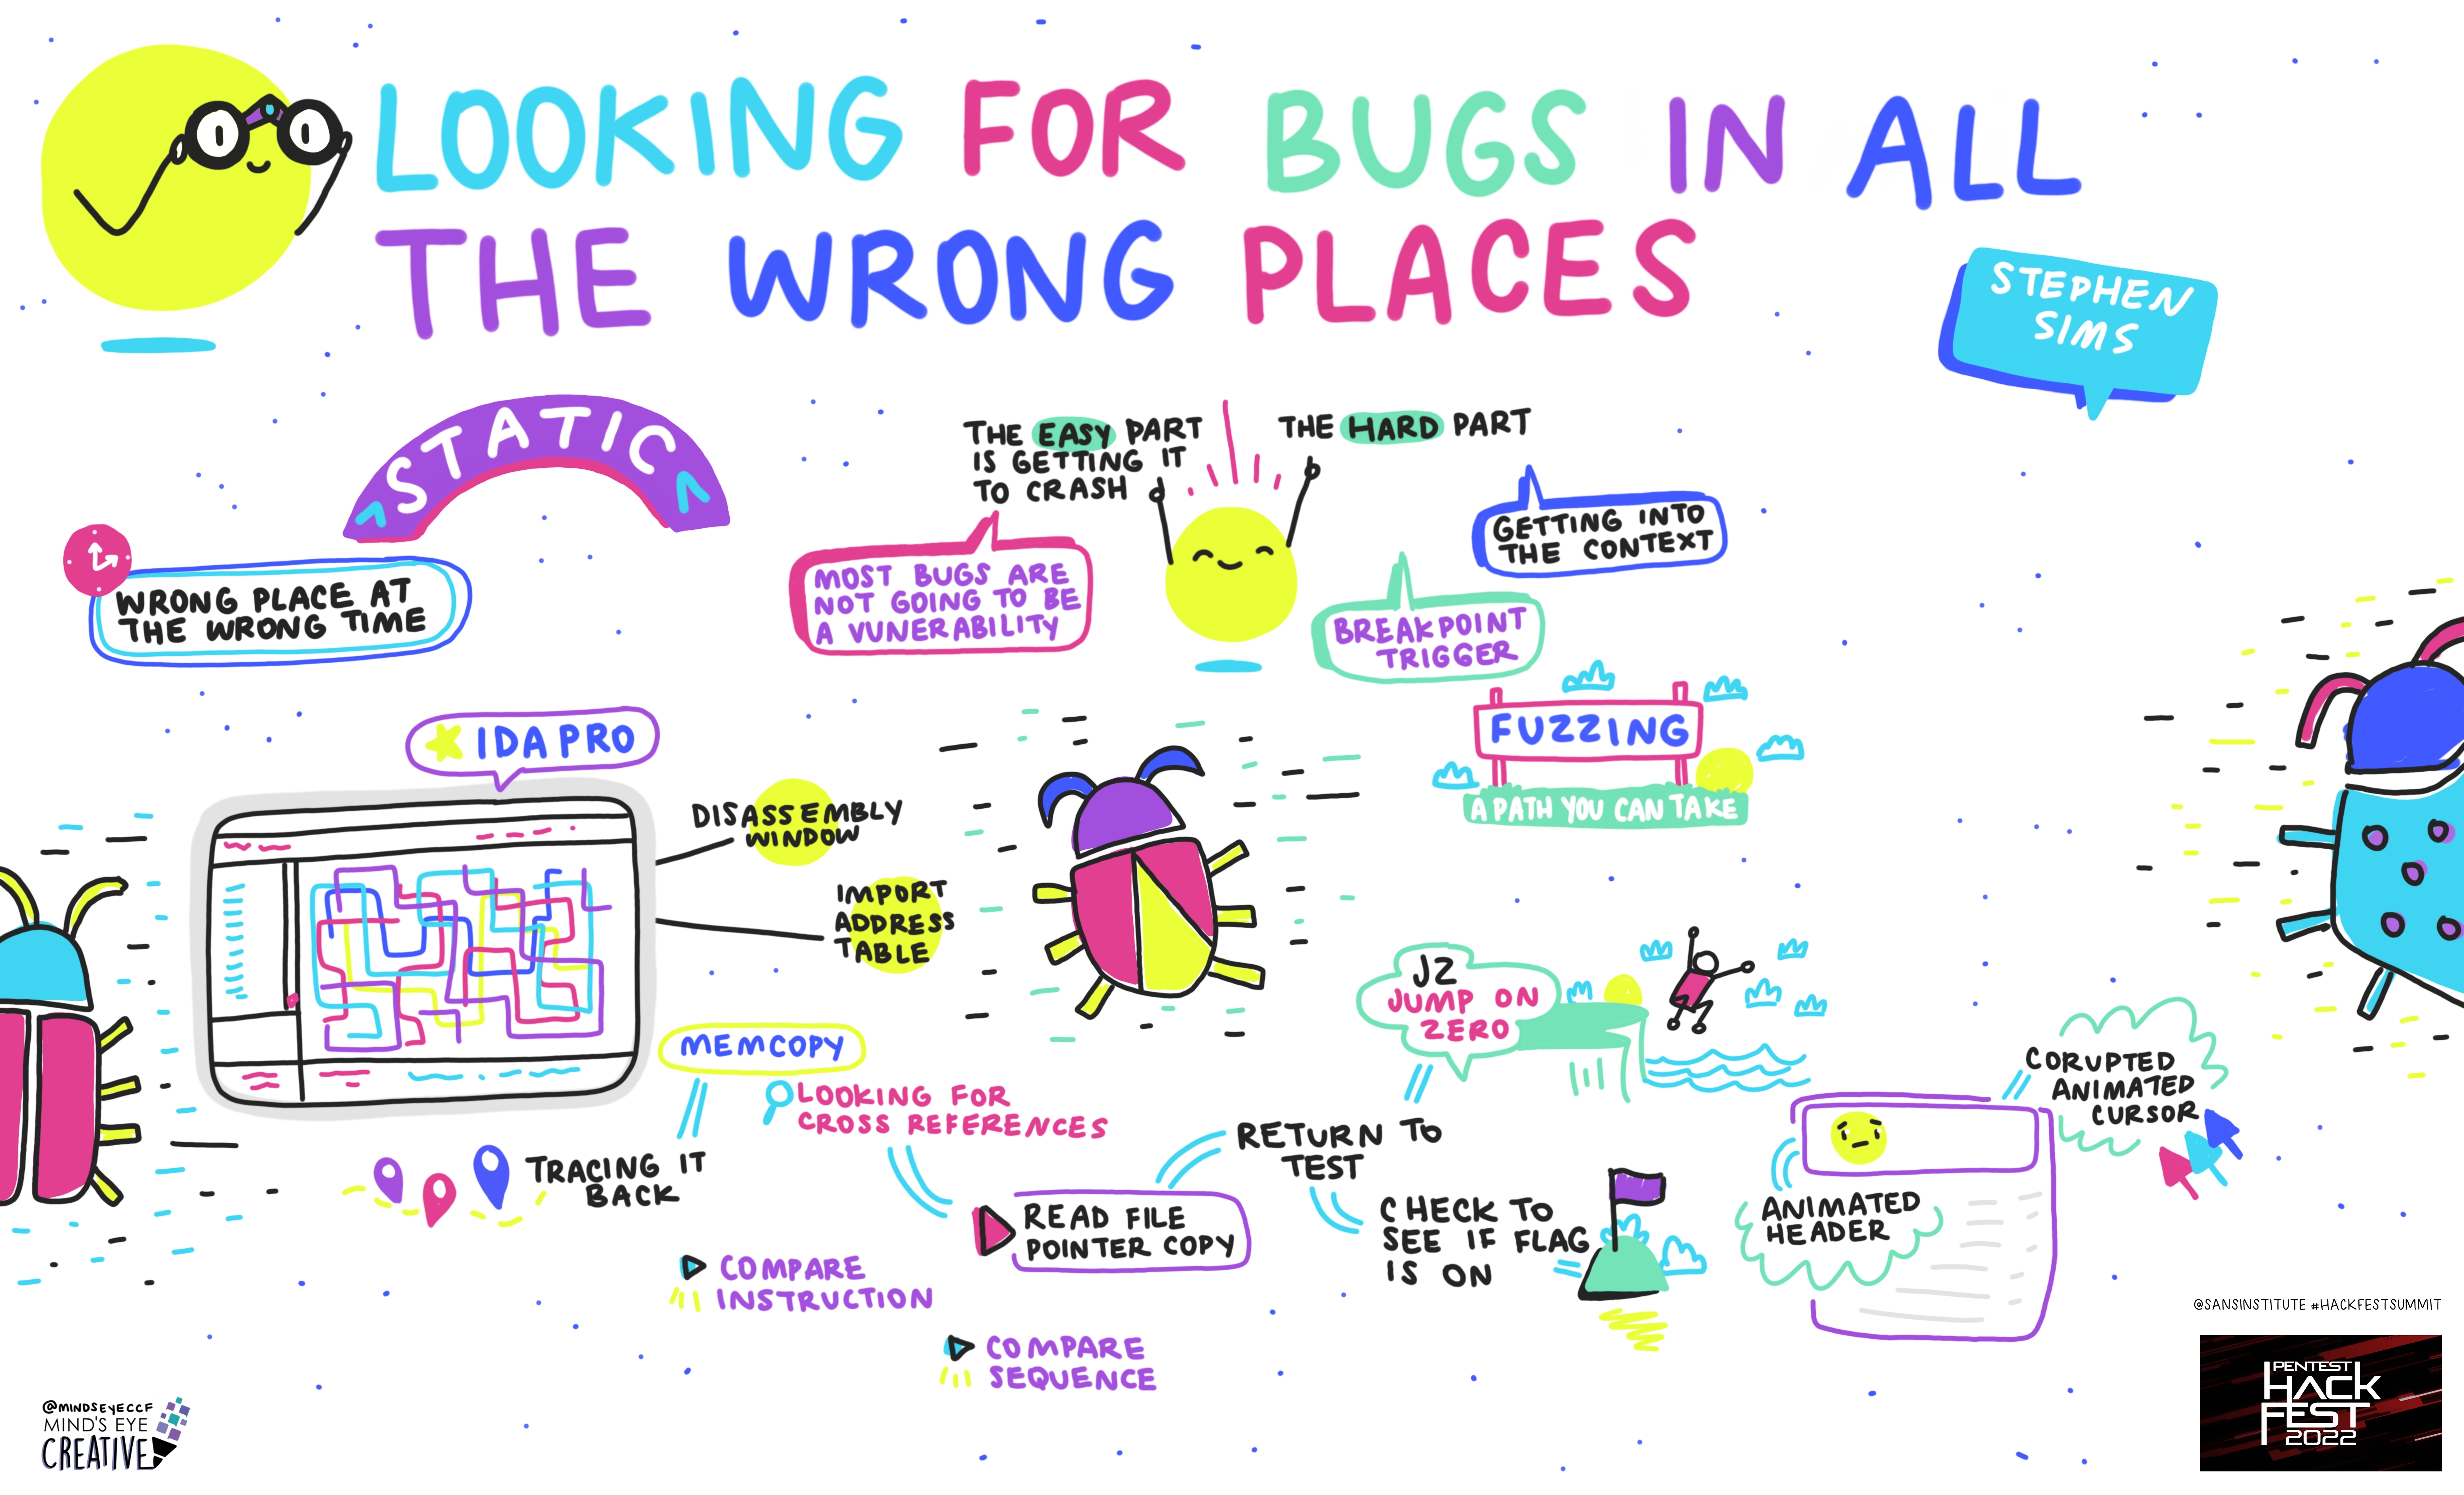 LOOKING FOR BUGS IN ALL
THE WRONG PLACES
STEPHEN
SIMS
STATIC
WRONG PLACE AT
THE WRONG TIME
THE EASY PART
IS GETTING IT
TO CRASH
MOST BUGS ARE
NOT GOING TO BE
A VUNERABILITY
THE HARD PART
GETTING INTO
THE CONTEXT
BREAKPOINT
TRIGGER
FUZZING
A PATH YOU CAN TAKE
IDA PRO
DISASSEMBLY
WINDOW
IMPORT
ADDRESS
TABLE
MEMCOPY
LOOKING FOR
CROSS REFERENCES
TRACING IT
BACK
COMPARE
INSTRUCTION
COMPARE
SEQUENCE
READ FILE
POINTER COPY
RETURN TO
TEST
JZ
JUMP ON
ZERO
CHECK TO
SEE IF FLAG
IS ON
ANIMATED
HEADER
CORUPTED
ANIMATED
CURSOR
@SANSINSTITUTE #HACKFESTSUMMIT
PENTEST
HACK
FEST
2022
@MINDSEYECCF
MIND'S EYE
CREATIVE